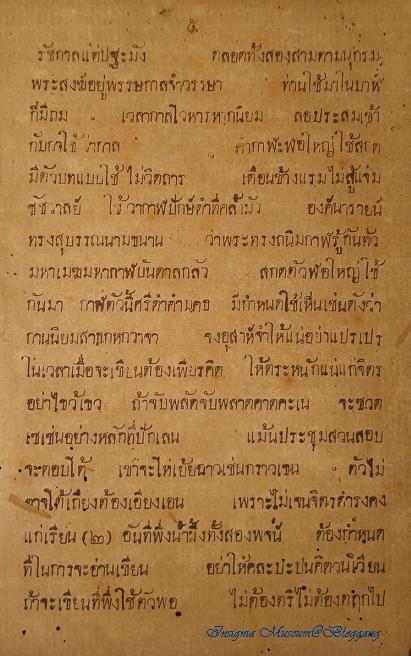 ๕
รัชกาลแต่ปฐะมัง ตลอดทั้งสองสามตาม
พระสงฆ์อยู่พรรษกาลจำวรรษา ท่านใช้มาในบาฬี
ก็มีถม เวลากาลไวหารหากนิยม ลอประสมเข้า
กับกาใช้ว่ากาล คำกาฬะฬอใหญ่ใช้สกด
มีตัวบทแบบใช้ไม่วิตถาร เดือนข้างแรมไม่สู้แจ่ม
ชัชวาลย์ ใช้ว่ากาฬปักษ์ดำที่คล้ำมัว องค์นารายน์
ทรงสุบรรณนามขนาน ว่าพระทรงถนิมกาฬรู้กันทั่ว
มหาเมฆมหากาฬบันดาลกลัว สกดตัวฬอใหญ่ใช้
กันมา กาฬตัวนี้ศรีดำคำมคธ มีกำหนดใช้เห็นเช่นดังว่า
กานนิยมสาธกหกวาจา จงอุส่าห์จำให้แน่อย่าแปรเปร
ในเวลาเมื่อจะเขียนต้องเพียรคิด ให้ตระหนักแน่แก่จิตร
อย่าไขว้เขว ถ้าจับพลัดจับพลาดคาดคะเน จะซวด
เซเช่นอย่างหลักที่ปักเลน แม้นประชุมสวนสอบ
จะตอบโต้ เขาจะไห่เย้ยฉาวเช่นกราวเขน ตัวไม่
อาจโต้เถียงต้องเอียงเอน เพราะไม่เจนจิตรดำรงคง
แก่เรียน (๒) อันที่พึ่งน้ำผึ้งทั้งสองพจน์ ต้องกำหนด
ที่ในการจะอ่านเขียน อย่าให้คละปะปนคิดวนเวียน
ถ้าจะเขียนที่พึ่งใช้ตัวพอ ไม่ต้องตริไม่ต้องตฤกไป
Insignia Museum@Bloggang